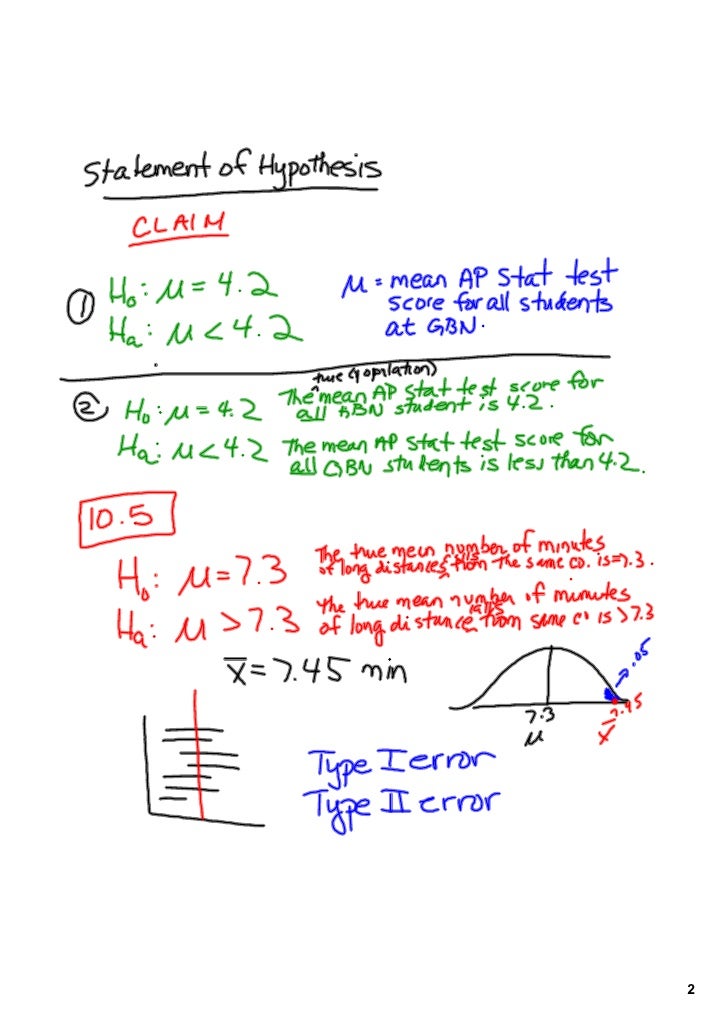 Statement of Hypothesis
CLAIM
① H₀: μ = 4.2
Hₐ: μ < 4.2
μ = mean AP Stat test
score for all students
at GBN.
② H₀: μ = 4.2
true (population)
The ^ mean AP Stat test score for
all GBN student is 4.2.
Hₐ: μ < 4.2
The mean AP Stat test score for
all GBN students is less than 4.2.
10.5
H₀: μ = 7.3
The true mean number of minutes
of long distance calls from the same co. is = 7.3.
Hₐ: μ > 7.3
the true mean number of minutes
of long distance calls from same co is > 7.3
x̅ = 7.45 min
.05
7.3
7.45
μ
x̅
Type I error
Type II error
2